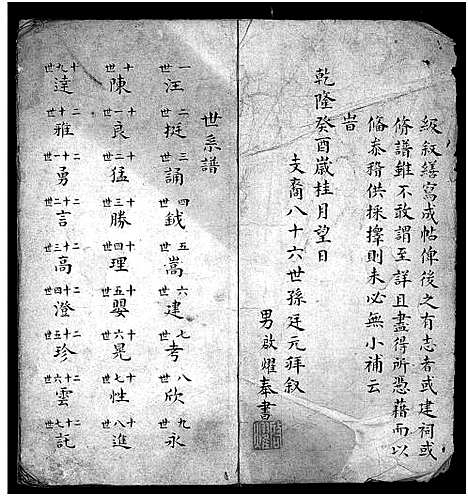 級叙繕寫成帖俾後之有志者或建祠或
脩譜雖不敢謂至詳且盡得所憑藉而以
備叅稽供採擇則未必無小補云
旹
乾隆癸酉歲桂月望日
支裔八十六世孫廷元拜叙
男啟耀奉書
世系譜
一世汪 二世挺 三世誦 四世鉞 五世嵩 六世建 七世考 八世欣 九世永
十世陳 十一世良 十二世猛 十三世勝 十四世理 十五世嬰 十六世晃 十七世性 十八世進
十九世達 二十世雅 二十一世勇 二十二世言 二十三世高 二十四世澄 二十五世珍 二十六世雲 二十七世託